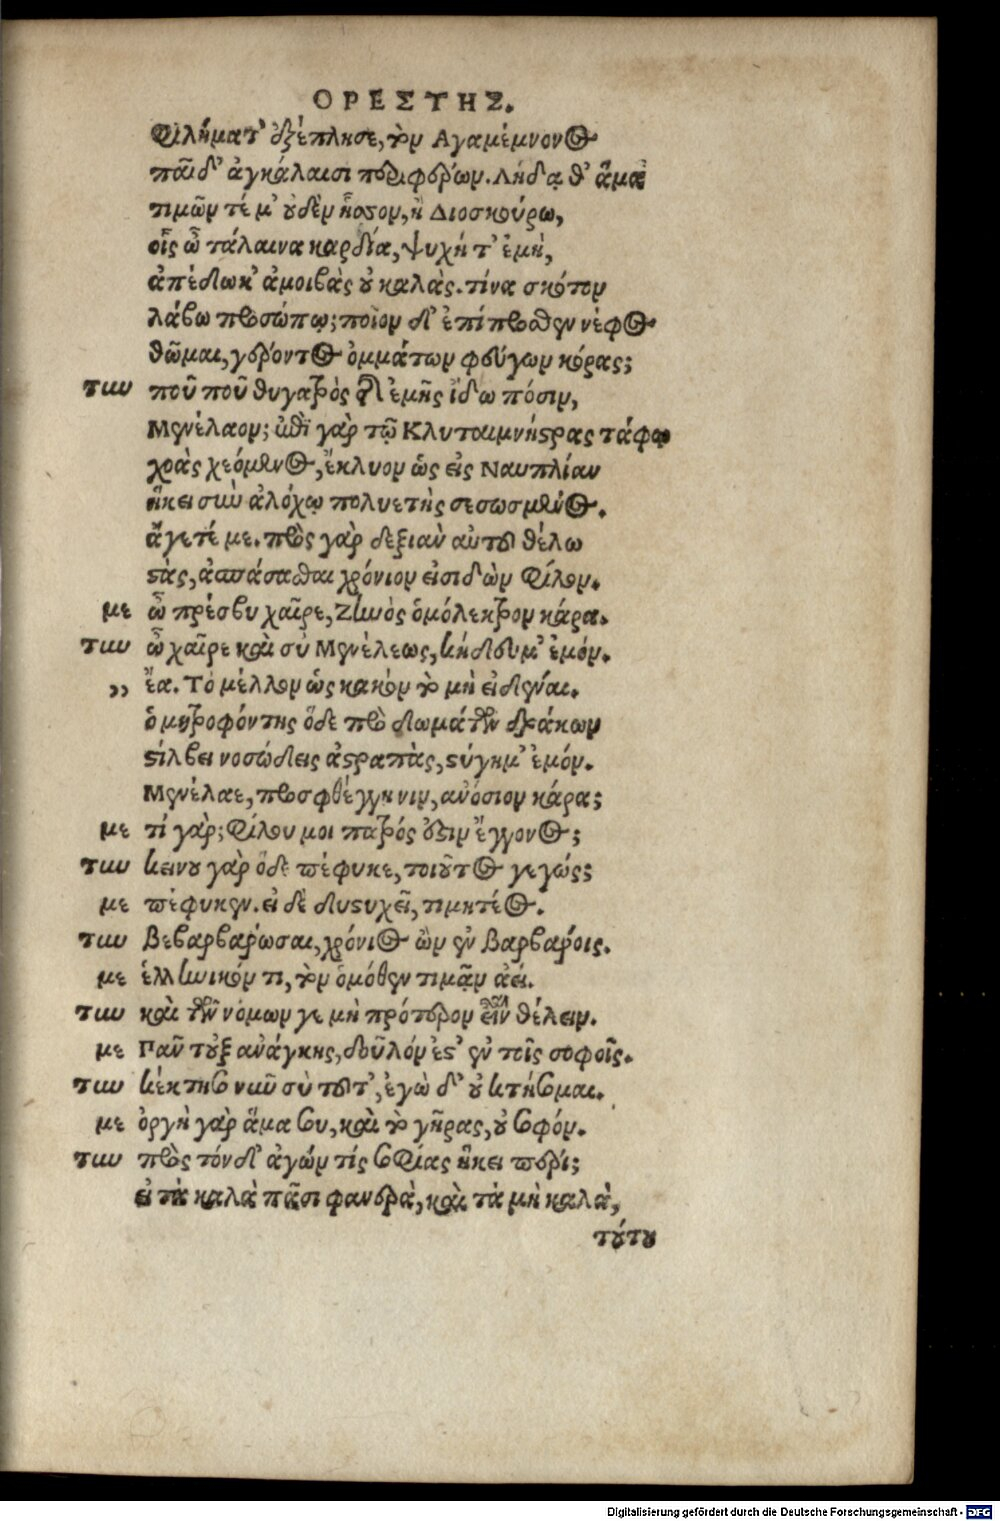 ΟΡΕΣΤΗΣ.
Φιλήματ' ἐξέπλησε, τὸν Αγαμέμνονος
παῖδ' ἀγκάλαισι περιφέρων. Λήδᾳ θ' ἅμα
τιμῶν τέ μ' οὐδὲν ἧσσον, ἢ Διοσκούρω,
οἷς ὦ τάλαινα καρδία, ψυχή τ' ἐμὴ,
ἀπέδωκ' ἀμοιβὰς οὐ καλὰς. τίνα σκότον
λάβω προσώπῳ; ποῖον δ' ἐπίπροσθεν νέφος
θῶμαι, γέροντος ὀμμάτων φεύγων κόρας;
τυν ποῦ ποῦ θυγατρὸς τῆς ἐμῆς ἴδω πόσιν,
Μενέλαον; ἐπὶ γὰρ τῷ Κλυταιμνήστρας τάφῳ
χοὰς χεόμενος, ἔκλυον ὡς εἰς Ναυπλίαν
ἥκει σὺν ἀλόχῳ πολυετὴς σεσωσμένος.
ἄγετέ με. πρὸς γὰρ δεξιὰν αὐτοῦ θέλω
στὰς, ἀσπάσασθαι χρόνιον εἰσιδὼν φίλον.
με ὦ πρέσβυ χαῖρε, Ζηνὸς ὁμόλεκτρον κάρα.
τυν ὦ χαῖρε καὶ σὺ Μενέλεως, κήδευμ' ἐμόν.
„ ἔα. Τὸ μέλλον ὡς κακὸν τὸ μὴ εἰδέναι.
ὁ μητροφόντης ὅδε πρὸ δωμάτων δράκων
στίλβει νοσώδεις ἀστραπὰς, στύγημ' ἐμόν.
Μενέλαε, προσφθέγγῃ νιν, ἀνόσιον κάρα;
με τί γὰρ; φίλου μοι πατρός ἐστιν ἔγγονος;
τυν κείνου γὰρ ὅδε πέφυκε, τοιοῦτος γεγώς;
με πέφυκεν. εἰ δὲ δυστυχεῖ, τιμητέος.
τυν βεβαρβάρωσαι, χρόνιος ὢν ἐν βαρβάροις.
με ἑλληνικόν τι, τὸν ὁμόθεν τιμᾶν ἀεί.
τυν καὶ τῶν νόμων γε μὴ πρότερον εἶναι θέλειν.
με Παν τοὐξ ἀνάγκης, δοῦλόν ἐστ' ἐν τοῖς σοφοῖς.
τυν κέκτησο νυν σὺ τοῦτ', ἐγὼ δ' οὐ κτήσομαι.
με ὀργὴ γὰρ ἅμα σου, καὶ τὸ γῆρας, οὐ σοφόν.
τυν πρὸς τόνδ' ἀγών τίς σοφίας ἥκει πέρι;
εἰ τὰ καλὰ πᾶσι φανερὰ, καὶ τὰ μὴ καλὰ,
τούτου
Digitalisierung gefördert durch die Deutsche Forschungsgemeinschaft - DFG